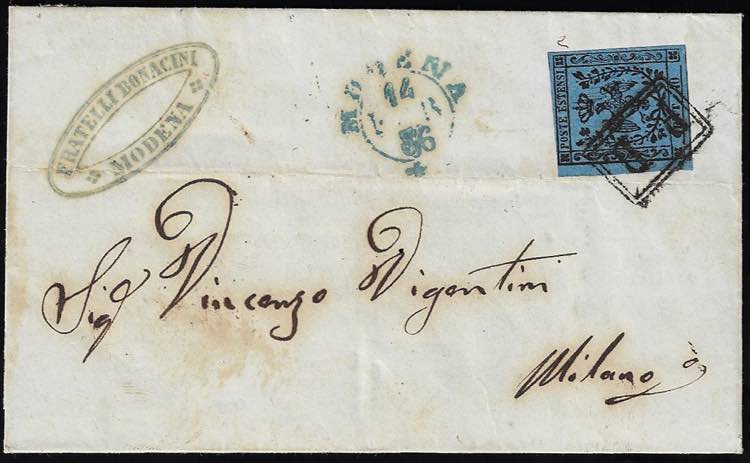 FRATELLI BONACINI
MODENA
MODENA
14
56
POSTE ESTENSI
Sig Vincenzo Vigentini
Milano